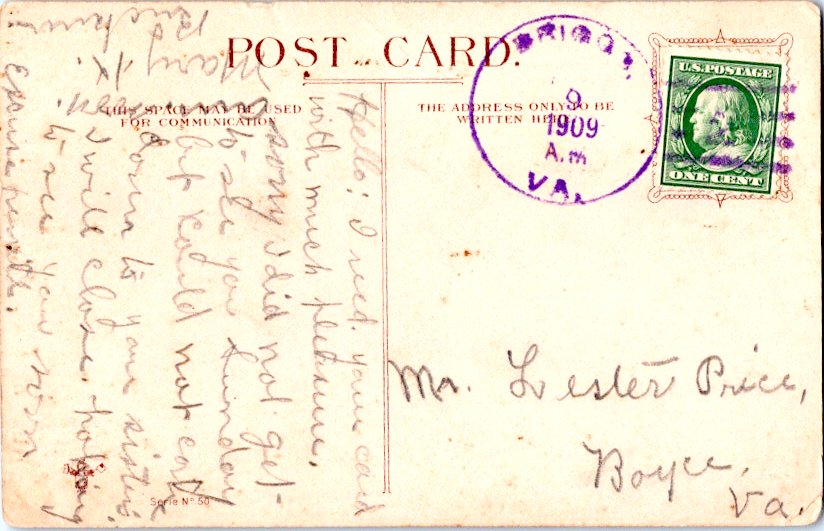 POST CARD.
THIS SPACE MAY BE USED
FOR COMMUNICATION
THE ADDRESS ONLY TO BE
WRITTEN HERE
BRIGGS
9
1909
A.M
VA.
U.S. POSTAGE
ONE CENT
Hello! I recd. your card
with much pleasure.
sorry I did not get
to see you Sunday
but could not
down to your sister's
I will close. hoping
to see you soon
Mary K.
Mr. Lester Price,
Boyce,
Va.
Serie No 50